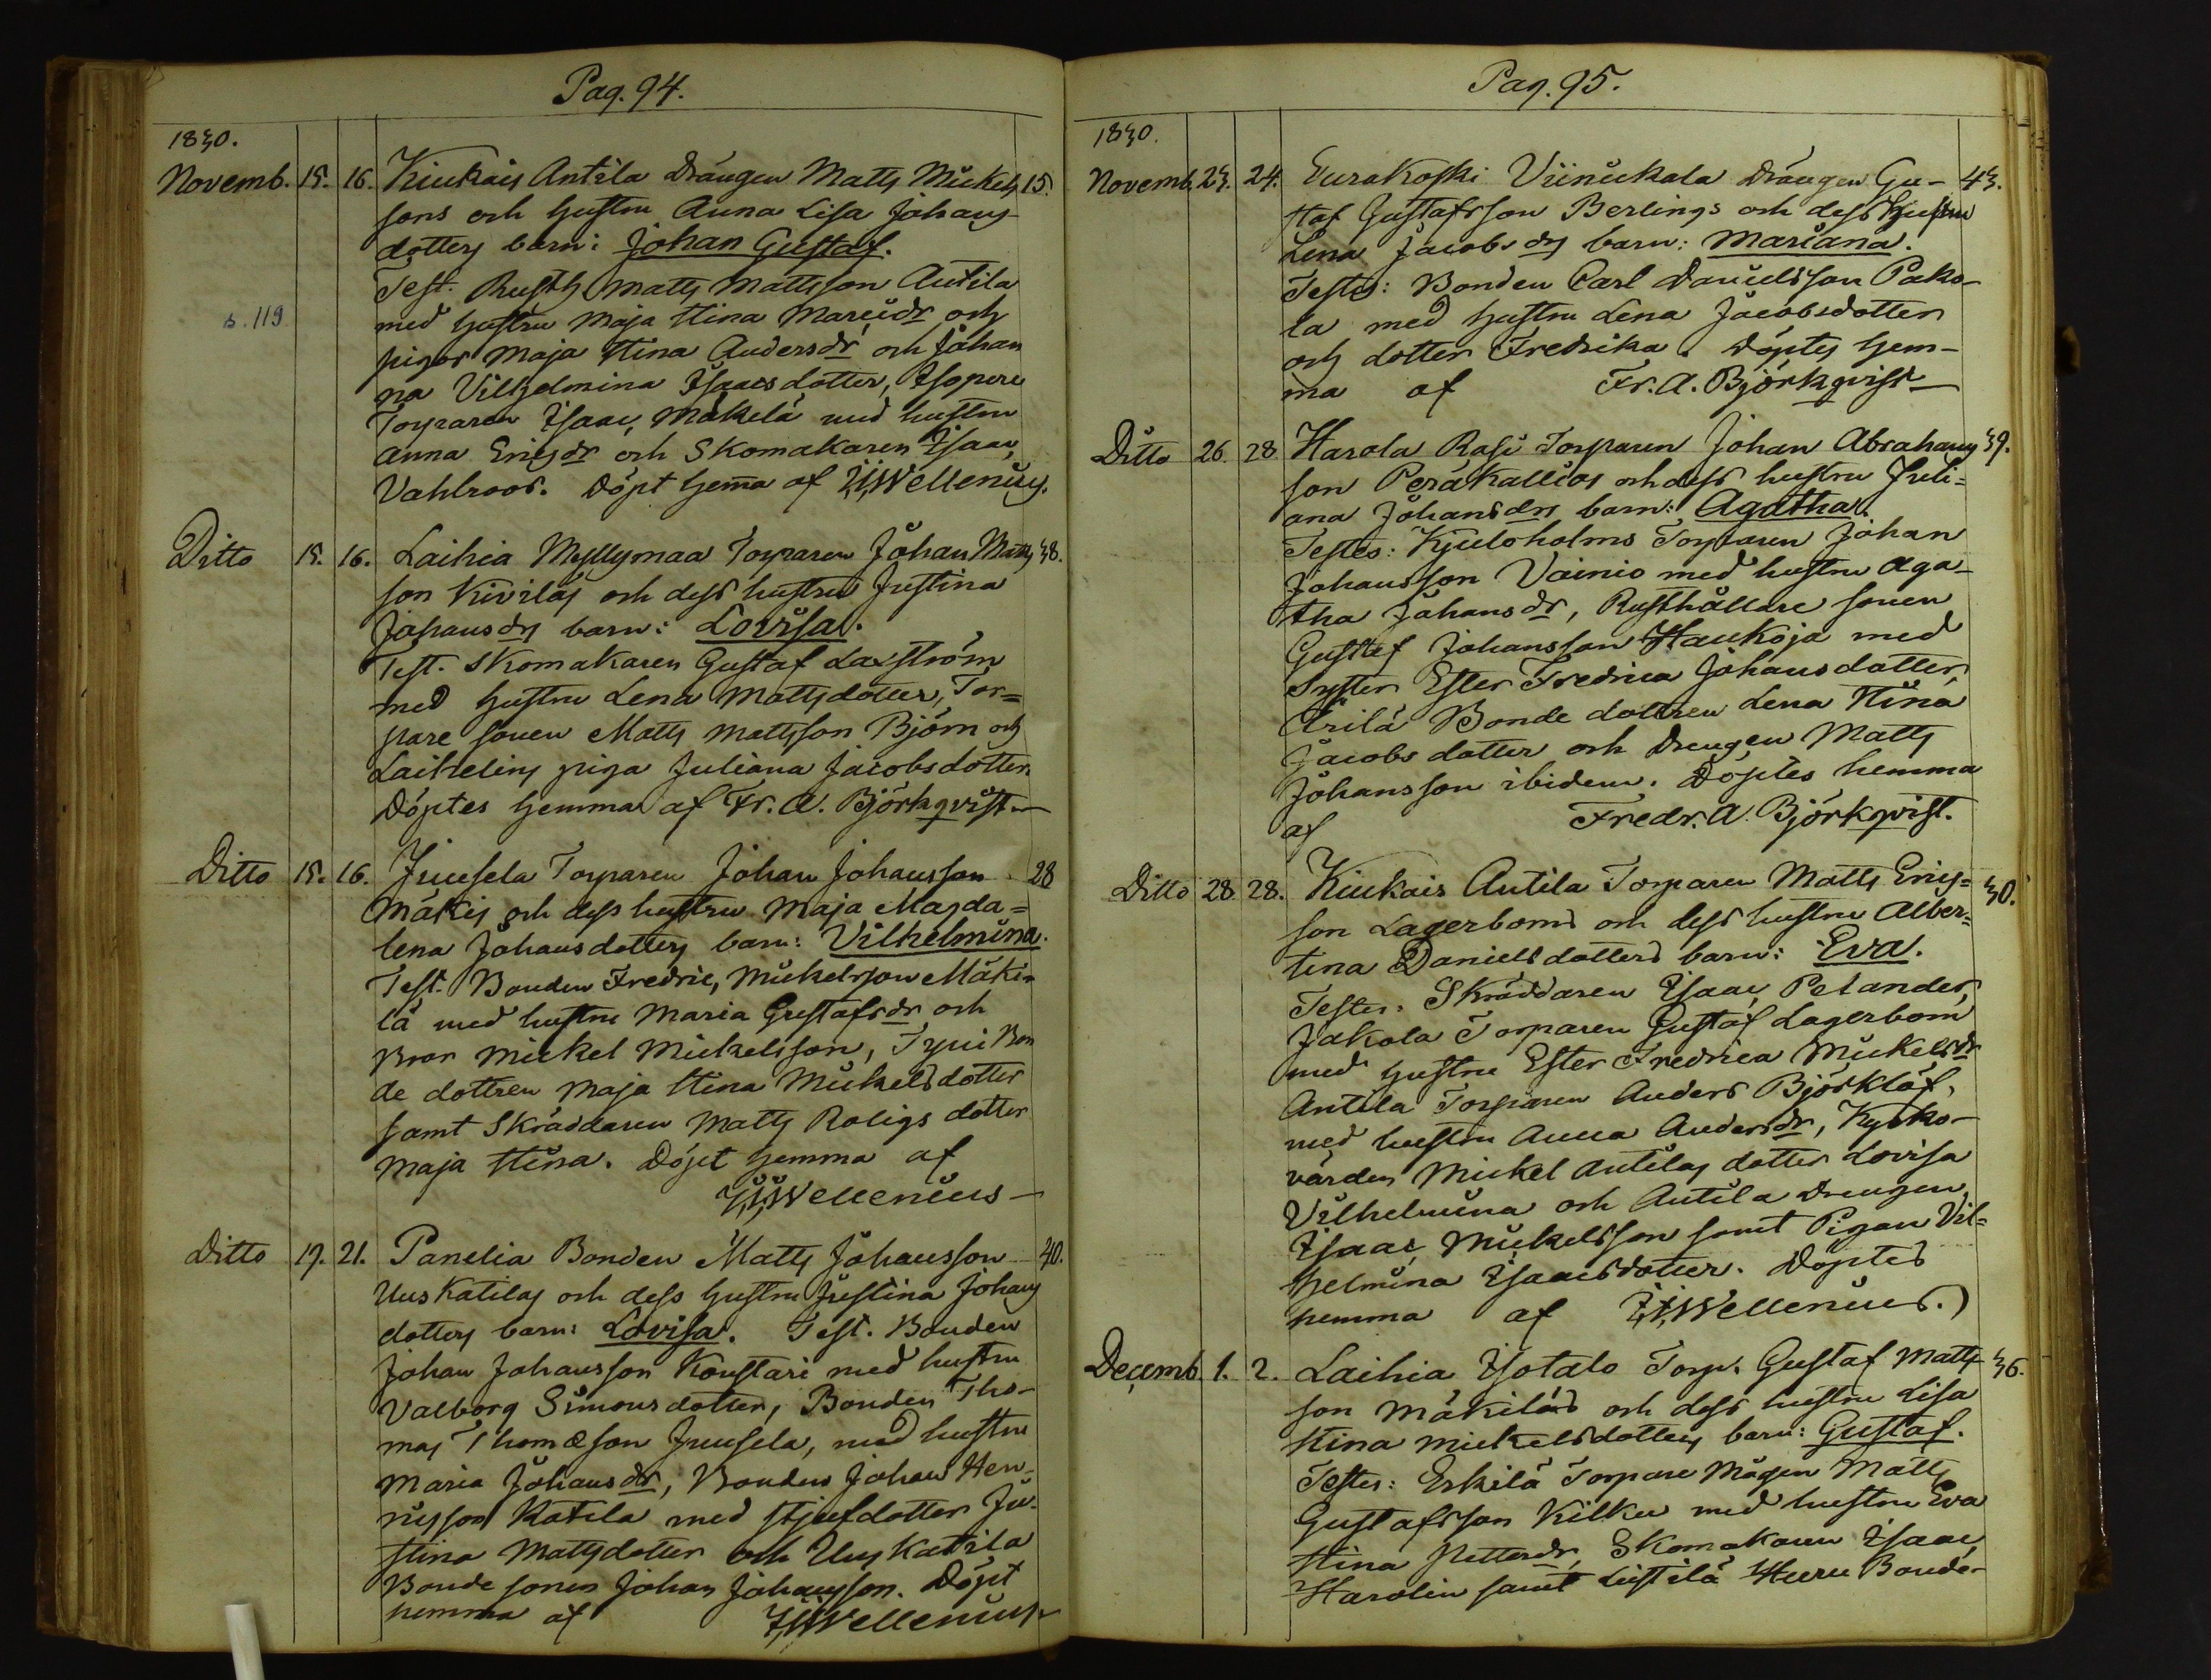 Pag. 94.
1830.
Novemb. 15. 16. Kiukais Antila Drängen Matts Mickels 15.
sons och hustru Anna Lisa Johans
dotters barn: Johan Gustaf.
Test. Rusth. Matts Mattsson Antila
s. 119 med hustru Maja Stina Marcidr och
pigor Maja Stina Andersdr och Johan
na Vilhelmina Isaacsdotter,
Torparen Isaac Mäkelä med hustru
Anna Ericsdr och Skomakaren Isaac
Vahlroos. Döpt hemma af Wellenius.
Ditto 15. 16. Laihia Myllymaa Torparen Johan Matts 38.
son Kiviläs och dess hustru Justina
Johansdrs barn: Lovisa.
Test. Skomakaren Gustaf Laxström
med hustru Lena Mattsdotter, Tor=
pare sonen Matts Mattsson Björn och
piga Juliana Jacobsdotter.
Döptes hemma af Fr. A. Björkqvist
Ditto 15. 16. Juusela Torparen Johan Johansson 28
Mäkis och dess hustru Maja Magda=
lena Johansdotters barn: Vilhelmina.
Test. Bonden Fredric Mickelsson Mäke=
lä med hustru Maria Gustafsdr och
Bror Mickel Mickelsson, Bon
de dottren Maja Stina Mickelsdotter
samt Skräddaren Matts Roligs dotter
Maja Stina. Döpt hemma af
Wellenius
Ditto 19. 21. Panelia Bonden Matts Johansson 40.
Uuskatilas och dess hustru Justina Johans
dotters barn: Lovisa. Test. Bonden
Johan Johansson Konstari med hustru
Valborg Simonsdotter, Bonden Tho-
mas Thomæson Juusela, med hustru
Maria Johansdr, Bonden Johan Hen-
ricsson Katila med stjufdotter Ju-
stina Mattsdotter och Uuskatila
Bonde sonen Johan Johansson. Döpt
hemma af Wellenius
Pag. 95.
1830.
Novemb. 23. 24. Eurakoski Viinikala Drängen Gu- 43.
staf Gustafsson Berlings och dess hustru
Lena Jacobsdrs barn: Mariana.
Testes: Bonden Carl Danielsson Pako-
la med hustru Lena Jacobsdotter
och dotter Fredrika. Döptes hem-
ma af Fr. A. Björkqvist
Ditto 26. 28 Harola Rasi Torparen Johan Abrahams 39.
son Peräkallios och dess hustru Juli=
ana Johansdrs barn: Agatha.
Testes: Kjuloholms Torparen Johan
Johansson Vainio med hustru Aga-
tha Johansdr, Rusthållare sonen
Gustaf Johansson Haukoja med
Syster Ester Fredrica Johansdotter,
Ärilä Bonde dottren Lena Stina
Jacobsdotter och Drengen Matts
Johansson ibidem. Döptes hemma
af Fredr. A. Björkqvist.
Ditto 28. 28. Kiukais Antila Torparen Matts Erics= 30.
son Lagerboms och dess hustru Alber=
tina Danielsdotters barn: Eva.
Testes. Skräddaren Isaac Pelander,
Jakola Torparen Gustaf Lagerbom
med hustru Ester Fredrica Mickelsdr
Antila Torparen Anders Björklöf,
med hustru Anna Andersdr, Kyrko-
värden Mickel Antilas dotter Lovisa
Vilhelmina och Antila Drengen
Isaac Mickelsson samt Pigan Vil=
helmina Isaacsdotter. Döptes
hemma af Wellenius.
Decemb. 1. 2. Laihia Isotalo Torp. Gustaf Matts 36.
son Mäkiläs och dess hustru Lisa
Stina Mickelsdotters barn: Gustaf.
Testes: Eskilä Torpare Mågen Matts
Gustafsson Kilku med hustru Eva
Stina Pettersdr, Skomakaren Isaac
Harolin samt Bonde-